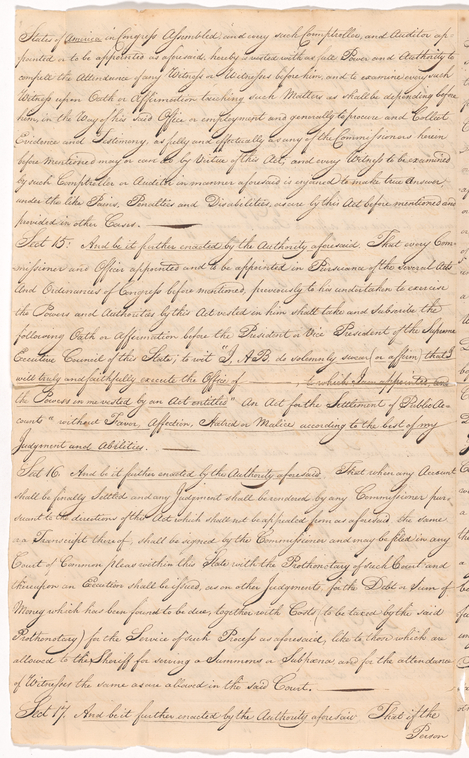 States of America in Congress Assembled and every such Comptroller, and Auditor ap-
pointed or to be appointed as aforesaid, hereby invested with as full Power and Authority to
compell the Attendance of any Witness or Witnesses before him, and to examine every such
Witness upon Oath or Affirmation touching such Matters as shall be depending before
him, in the Way of his said Office or employment and generally to procure and Collect
Evidence and Testimony, as fully and effectually as any of the Commissioners herein
before Mentioned may or can do by Virtue of this Act, and every Witness to be examined
by such Comptroller or Auditor in manner aforesaid is enjoined to make true Answer
under the like Pains, Penalties and Disabilities, as are by this Act before mentioned and
provided in other Cases.
Sect 15. And be it further enacted by the Authority aforesaid. That every Com-
missioner and Officer appointed and to be appointed in Persuance of the Several Acts
And Ordinances of Congress before mentioned, previously to his undertaken to exercise
the Powers and Authorities by this Act vested in him shall take and Subscribe the
following Oath or Affirmation before the President or Vice President of the Supreme
Executive Council of this State; to wit I. A B. do solemnly swear (or affirm) that I
will truly and faithfully execute the Office of to which I am appointed, and
the Powers in me vested by an Act entitled "An Act for the Settlement of Public Ac-
counts" without Favor, Affection, Hatred or Malice according to the best of my
Judgement and Abilities.
Sect 16. And be it further enacted by the Authority aforesaid. That when any Account
shall be finally Settled and any Judgment shall be rendered by any Commissioner pur-
suant to the directions of this Act which shall not be appealed from as aforesaid the same
or a Transcript thereof, shall be signed by the Commissioner and may be filed in any
Court of Common pleas within this State with the Prothonotary of such Court and
thereupon an Execution shall be issued, as on other Judgments, for the Debt or Sum of
Money which has been found to be due, together with Costs, to be taxed by the said
Prothonotary) for the Service of such Process as aforesaid, like to those which are
allowed to the Sheriff for serving a Summons or Subpœna and for the attendance
of Witnesses the same as are allowed in the said Court.
Sect 17. And be it further enacted by the Authority aforesaid That if the
Person